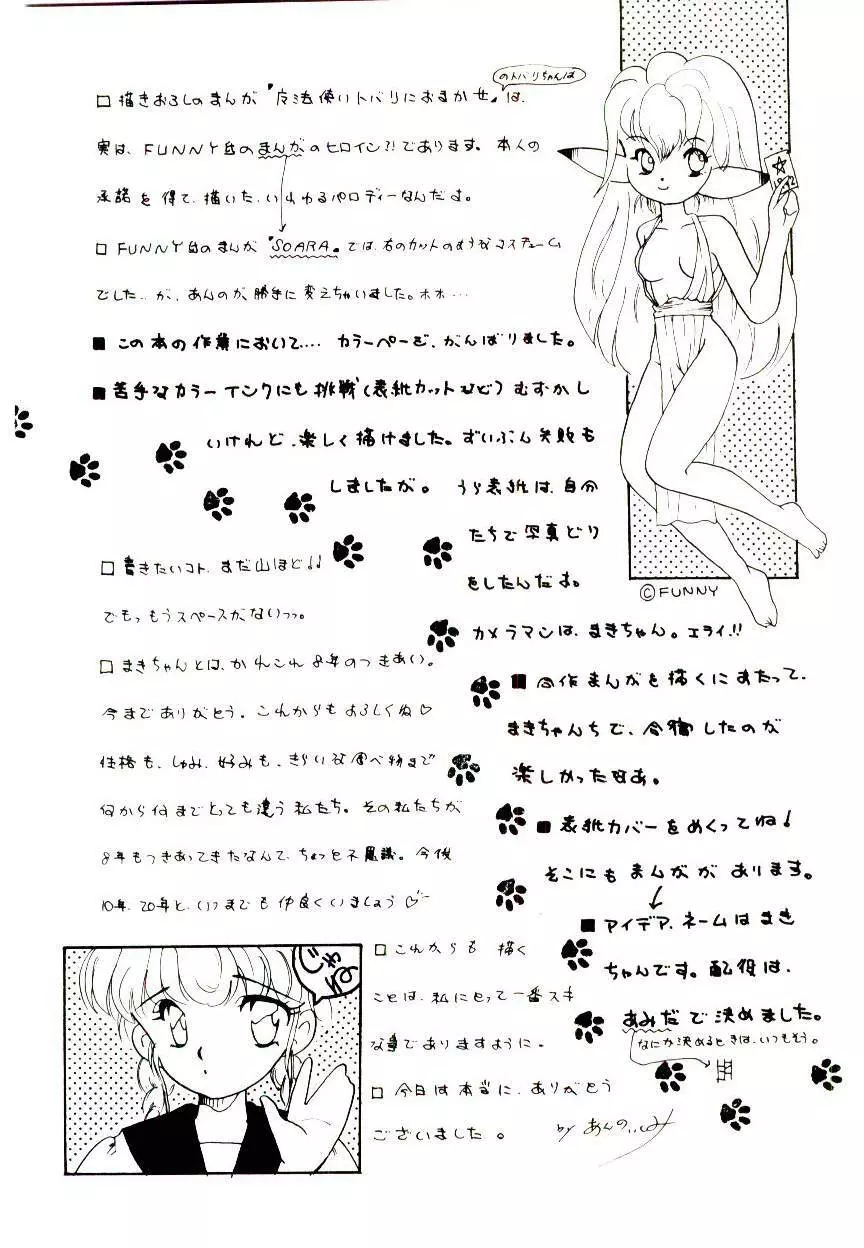 のトバリちゃんは
□描きおろしのまんが「反法使いトバリにおまかせ」は、
実は、FUNNY島のまんがのヒロイン?!であります。本人の
承諾を得て、描いた、いわゆるパロディーなんだよ。
□FUNNY島のまんが「SOARA」では、右のカットのようなコスチューム
でした‥が、あんのが、勝手に変えちゃいました。ホホ…
■この本の作業において‥‥カラーページを、がんばりました。
■苦手なカラーインクにも挑戦(表紙カットなど)むずかし
いけれど、楽しく描けました。ずいぶん失敗も
しましたが。うら表紙は、自分
たちで写真どり
をしたんだよ。
©FUNNY
カメラマンは、まきちゃん。エライ!!
■合作まんがを描くにあたって、
まきちゃんちで、合宿したのが
楽しかったなあ。
■表紙カバーをめくってね!
そこにもまんがが あります。
■アイデア、ネームはまき
ちゃんです。配役は、
あみだで決めました。
なにか決めるときは、いつもそう。
□書きたいコト、まだ山ほど!!
でもっもうスペースがないっっ。
□まきちゃんとは、かれこれ8年のつきあい。
今までありがとう。これからもよろしくね♡
性格も、しゅみ、好みも、きらいな食べ物まで
何から何までとっても違う私たち。その私たちが
8年もつきあってきたなんて、ちょっと不思議。今後
10年、20年と、いつまでも仲良くいましょう♡
□これからも 描く
ことは、私にとって一番スキ
な事でありますように。
□今日は本当に、ありがとう
ございました。
by あんの
じゃね